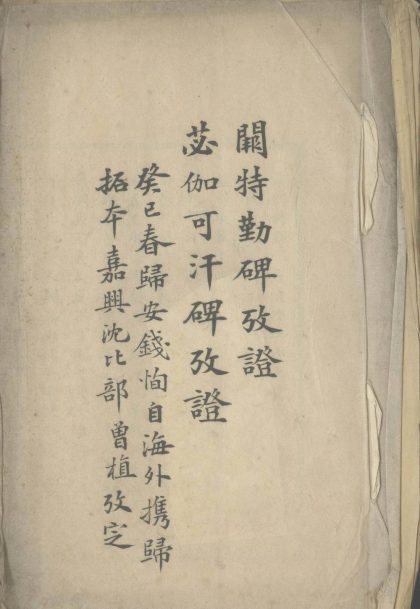 闕特勤碑攷證
苾伽可汗碑攷證
癸巳春歸安錢恂自海外携歸
拓本嘉興沈比部曾植攷定